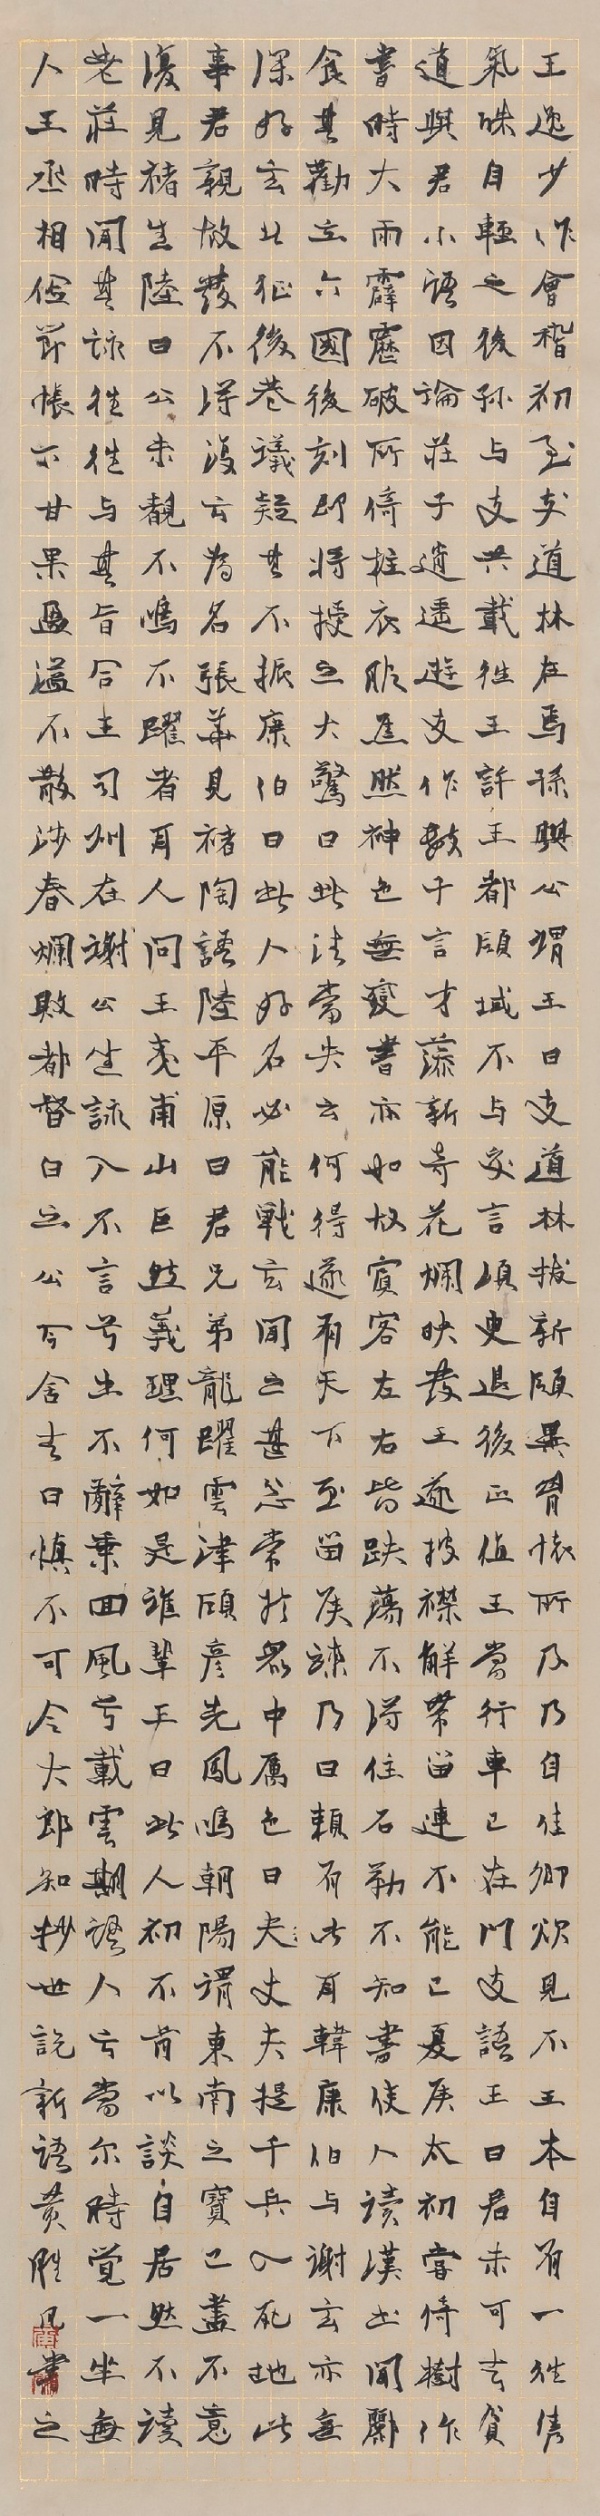 王逸少作會稽初至支道林在焉孫興公謂王曰支道林拔新領異胷懷所及乃自佳卿欲見不王本自有一往雋
氣殊自輕之後孫与支共載往王許王都領域不与交言須臾退後正值王當行車已在門支語王曰君未可去貧
道與君小語因論莊子逍遙遊支作數千言才藻新奇花爛映發王遂披襟解帶留連不能已夏侯太初嘗倚樹作
書時大雨霹靂破所倚柱衣服焦然神色無變書亦如故賓客左右皆跌蕩不得住石勒不知書使人讀漢書聞酈
食其勸立六國後刻印將授之大驚曰此法當失云何得遂有天下至留侯諫乃曰賴有此耳韓康伯与謝玄亦無
深好玄北征後巷議疑其不振康伯曰此人好名必能戰玄聞之甚忿常於眾中厲色曰夫丈夫提千兵入死地此
事君親故發不得復云為名張華見褚陶語陸平原曰君兄弟龍躍雲津顧彥先鳳鳴朝陽謂東南之寶已盡不意
復見褚生陸曰公未覩不鳴不躍者耳人問王夷甫山巨然義理何如是誰輩王曰此人初不肯以談自居然不讀
老莊時聞其詠往往与其旨合王司州在謝公坐詠入不言兮出不辭乘回風兮載雲期語人云當尔時覺一坐無
人王丞相儉節帳下甘果盈溢不散涉春爛敗都督白之公令舍去曰慎不可令大郎知抄世說新語黃勝凡書之